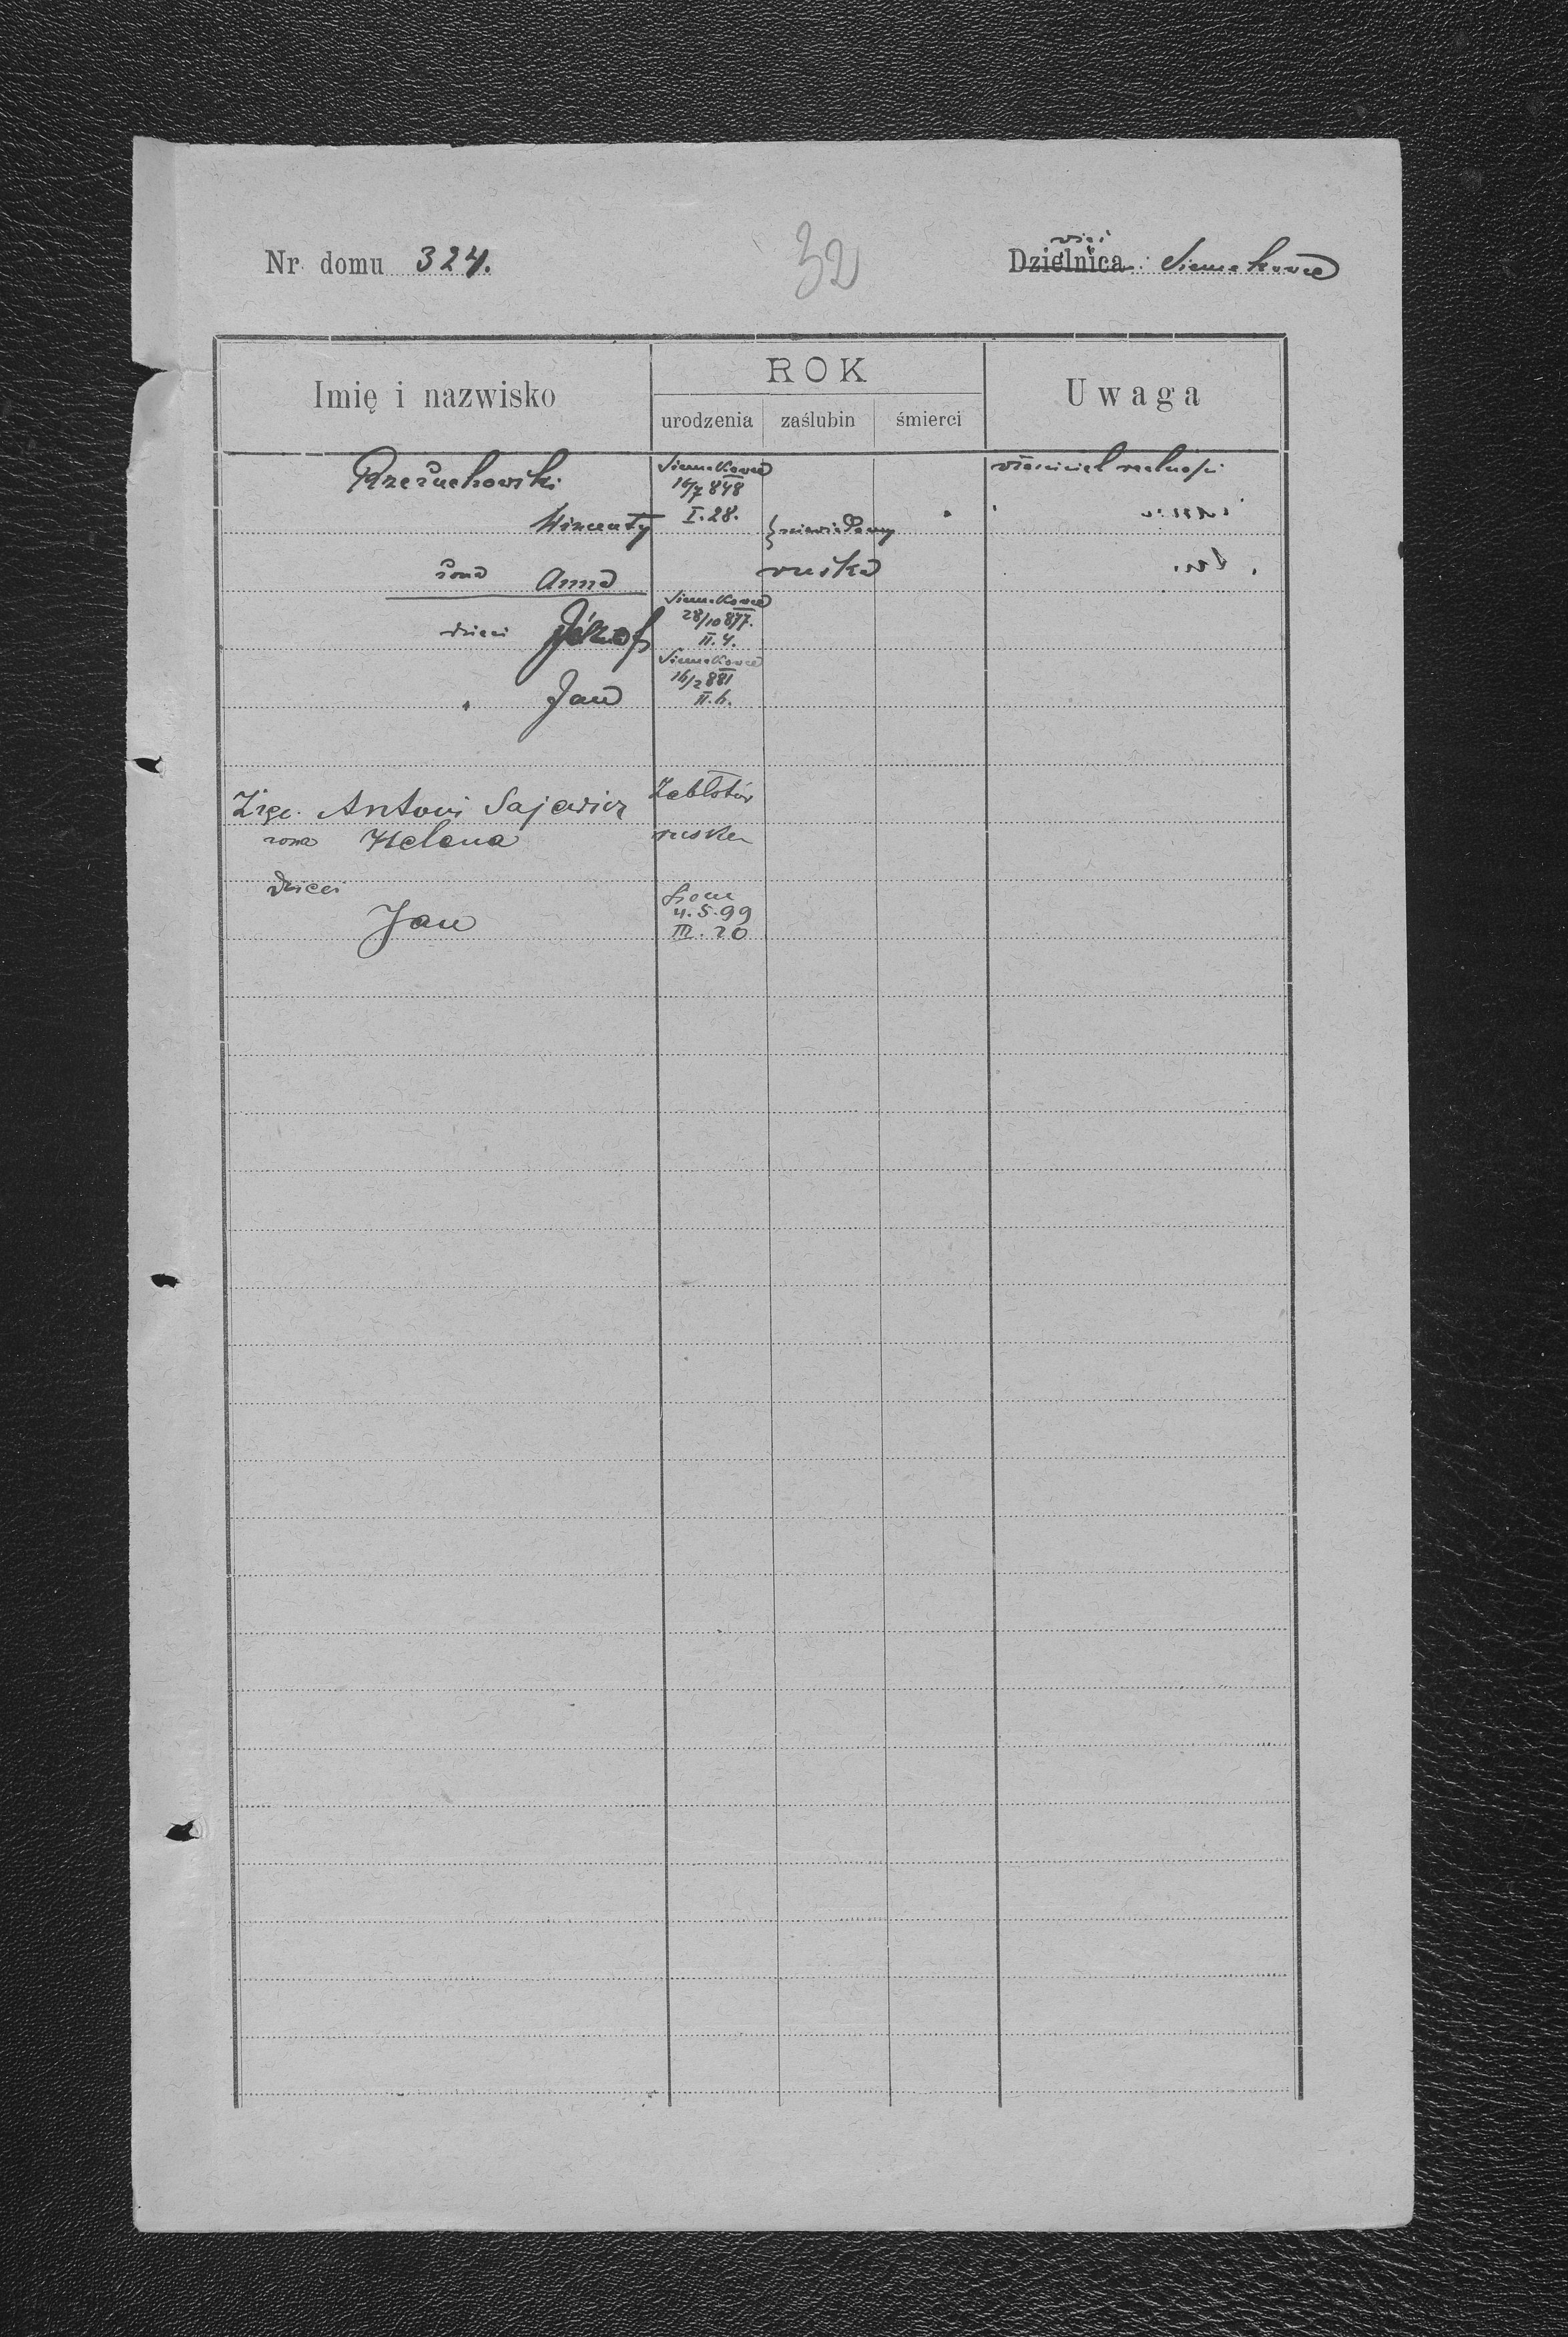 Nr domu 324.
32
wieś
Dzielnica Siemakowce
Imię i nazwisko
ROK
urodzenia zaślubin śmierci
Uwaga
Rzeżuchowski
Siemakowce
właściciel realności
16/7 848
Wincenty
I. 28.
niewiadomy
żona Anna
ruska
Siemakowce
28/10 877.
dzieci Józef
II. 4.
Siemakowce
16/2 881
" Jan
II. 6.
Antoni Sajewicz
Zabłotów
żona Helena
ruska
dzieci
Jan
4.5.99
III. 20